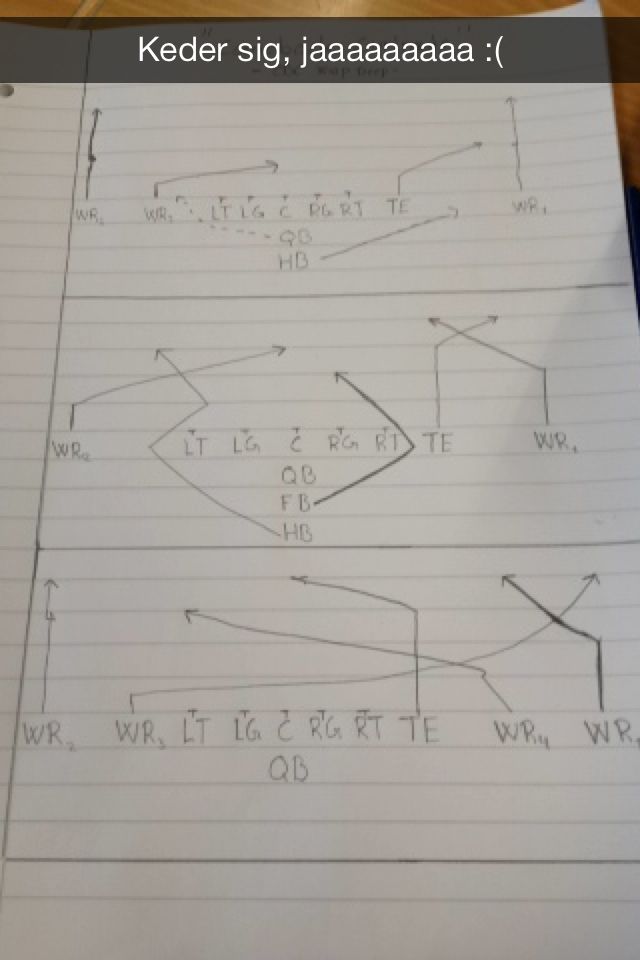 Keder sig, jaaaaaaaaa :(
WR₂ WR₃ LT LG C RG RT TE WR₁
QB
HB
WR₂ LT LG C RG RT TE WR₁
QB
FB
HB
WR₂ WR₃ LT LG C RG RT TE WR₄ WR₁
QB